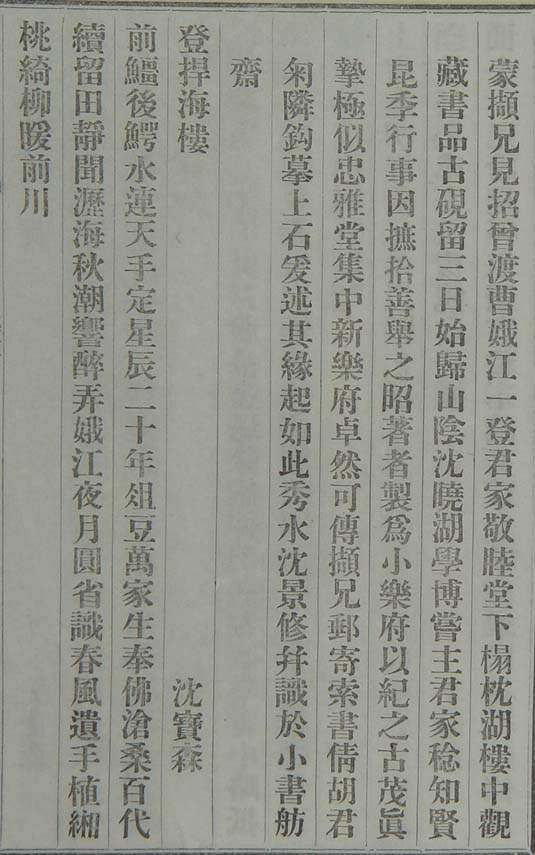 蒙擷兄見招曾渡曹娥江一登君家敬睦堂下榻枕湖樓中觀
藏書品古硯留三日始歸山陰沈曉湖學博嘗主君家稔知賢
昆季行事因摭拾善舉之昭著者製爲小樂府以紀之古茂眞
摯極似忠雅堂集中新樂府卓然可傳擷兄郵寄索書倩胡君
匊隣鈎摹上石爰述其緣起如此秀水沈景修幷識於小書舫
齋
登捍海樓 沈寶森
前鱷後鰐水連天手定星辰二十年俎豆萬家生奉佛滄桑百代
續留田靜聞瀝海秋潮響醉弄娥江夜月圓省識春風遺手植緗
桃綺柳暖前川